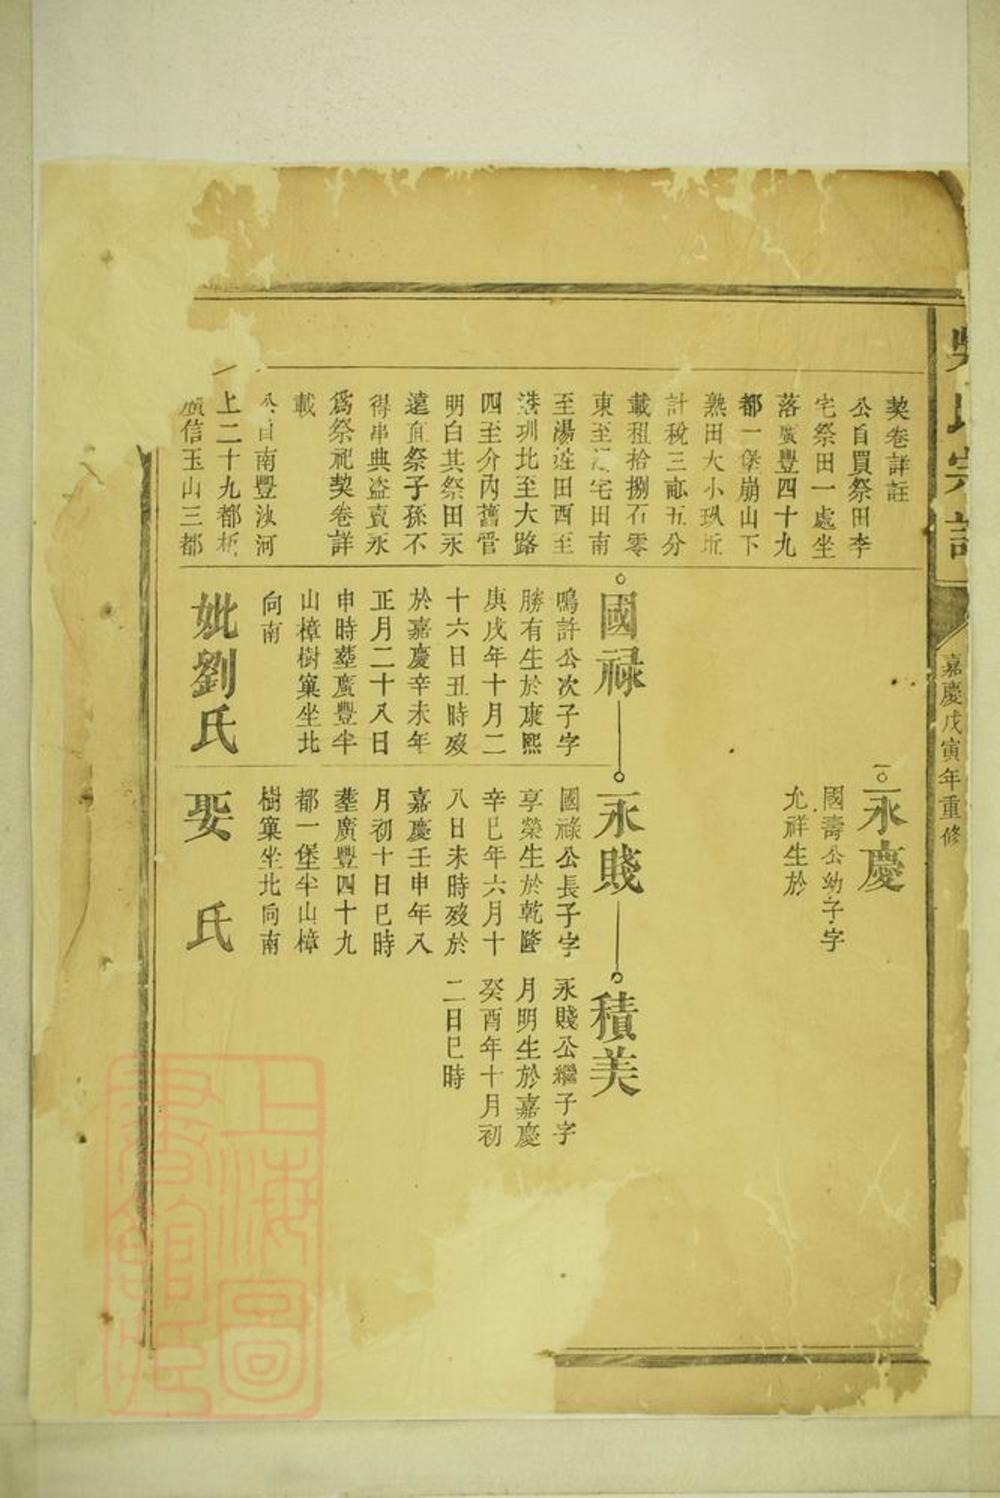 氏宗
嘉慶戊寅年重修
契卷詳註
公自買祭田李
宅祭田一處坐
落廣豐四十九
都一堡崩山下
熟田大小坵
計稅三畝五分
載租拾捌石零
東至宅田南
至湯姓田西至
圳北至大路
四至介內舊管
明白其祭田永
遠祭子孫不
得串典盜賣永
爲祭祀契卷詳
載
自南豐河
上二十九都
信玉山三都
永慶
國壽公幼子字
允祥生於
國祿
鳴許公次子字
勝有生於康熙
庚戌年十月二
十六日丑時歿
於嘉慶辛未年
正月二十八日
申時塟廣豐半
山樟樹窠坐北
向南
妣劉氏
永賤
國祿公長子字
享榮生於乾隆
辛巳年六月十
八日未時歿於
嘉慶壬申年八
月初十日巳時
塟廣豐四十九
都一堡半山樟
樹窠坐北向南
娶氏
積美
永賤公繼子字
月明生於嘉慶
癸酉年十月初
二日巳時
上海圖
書館藏